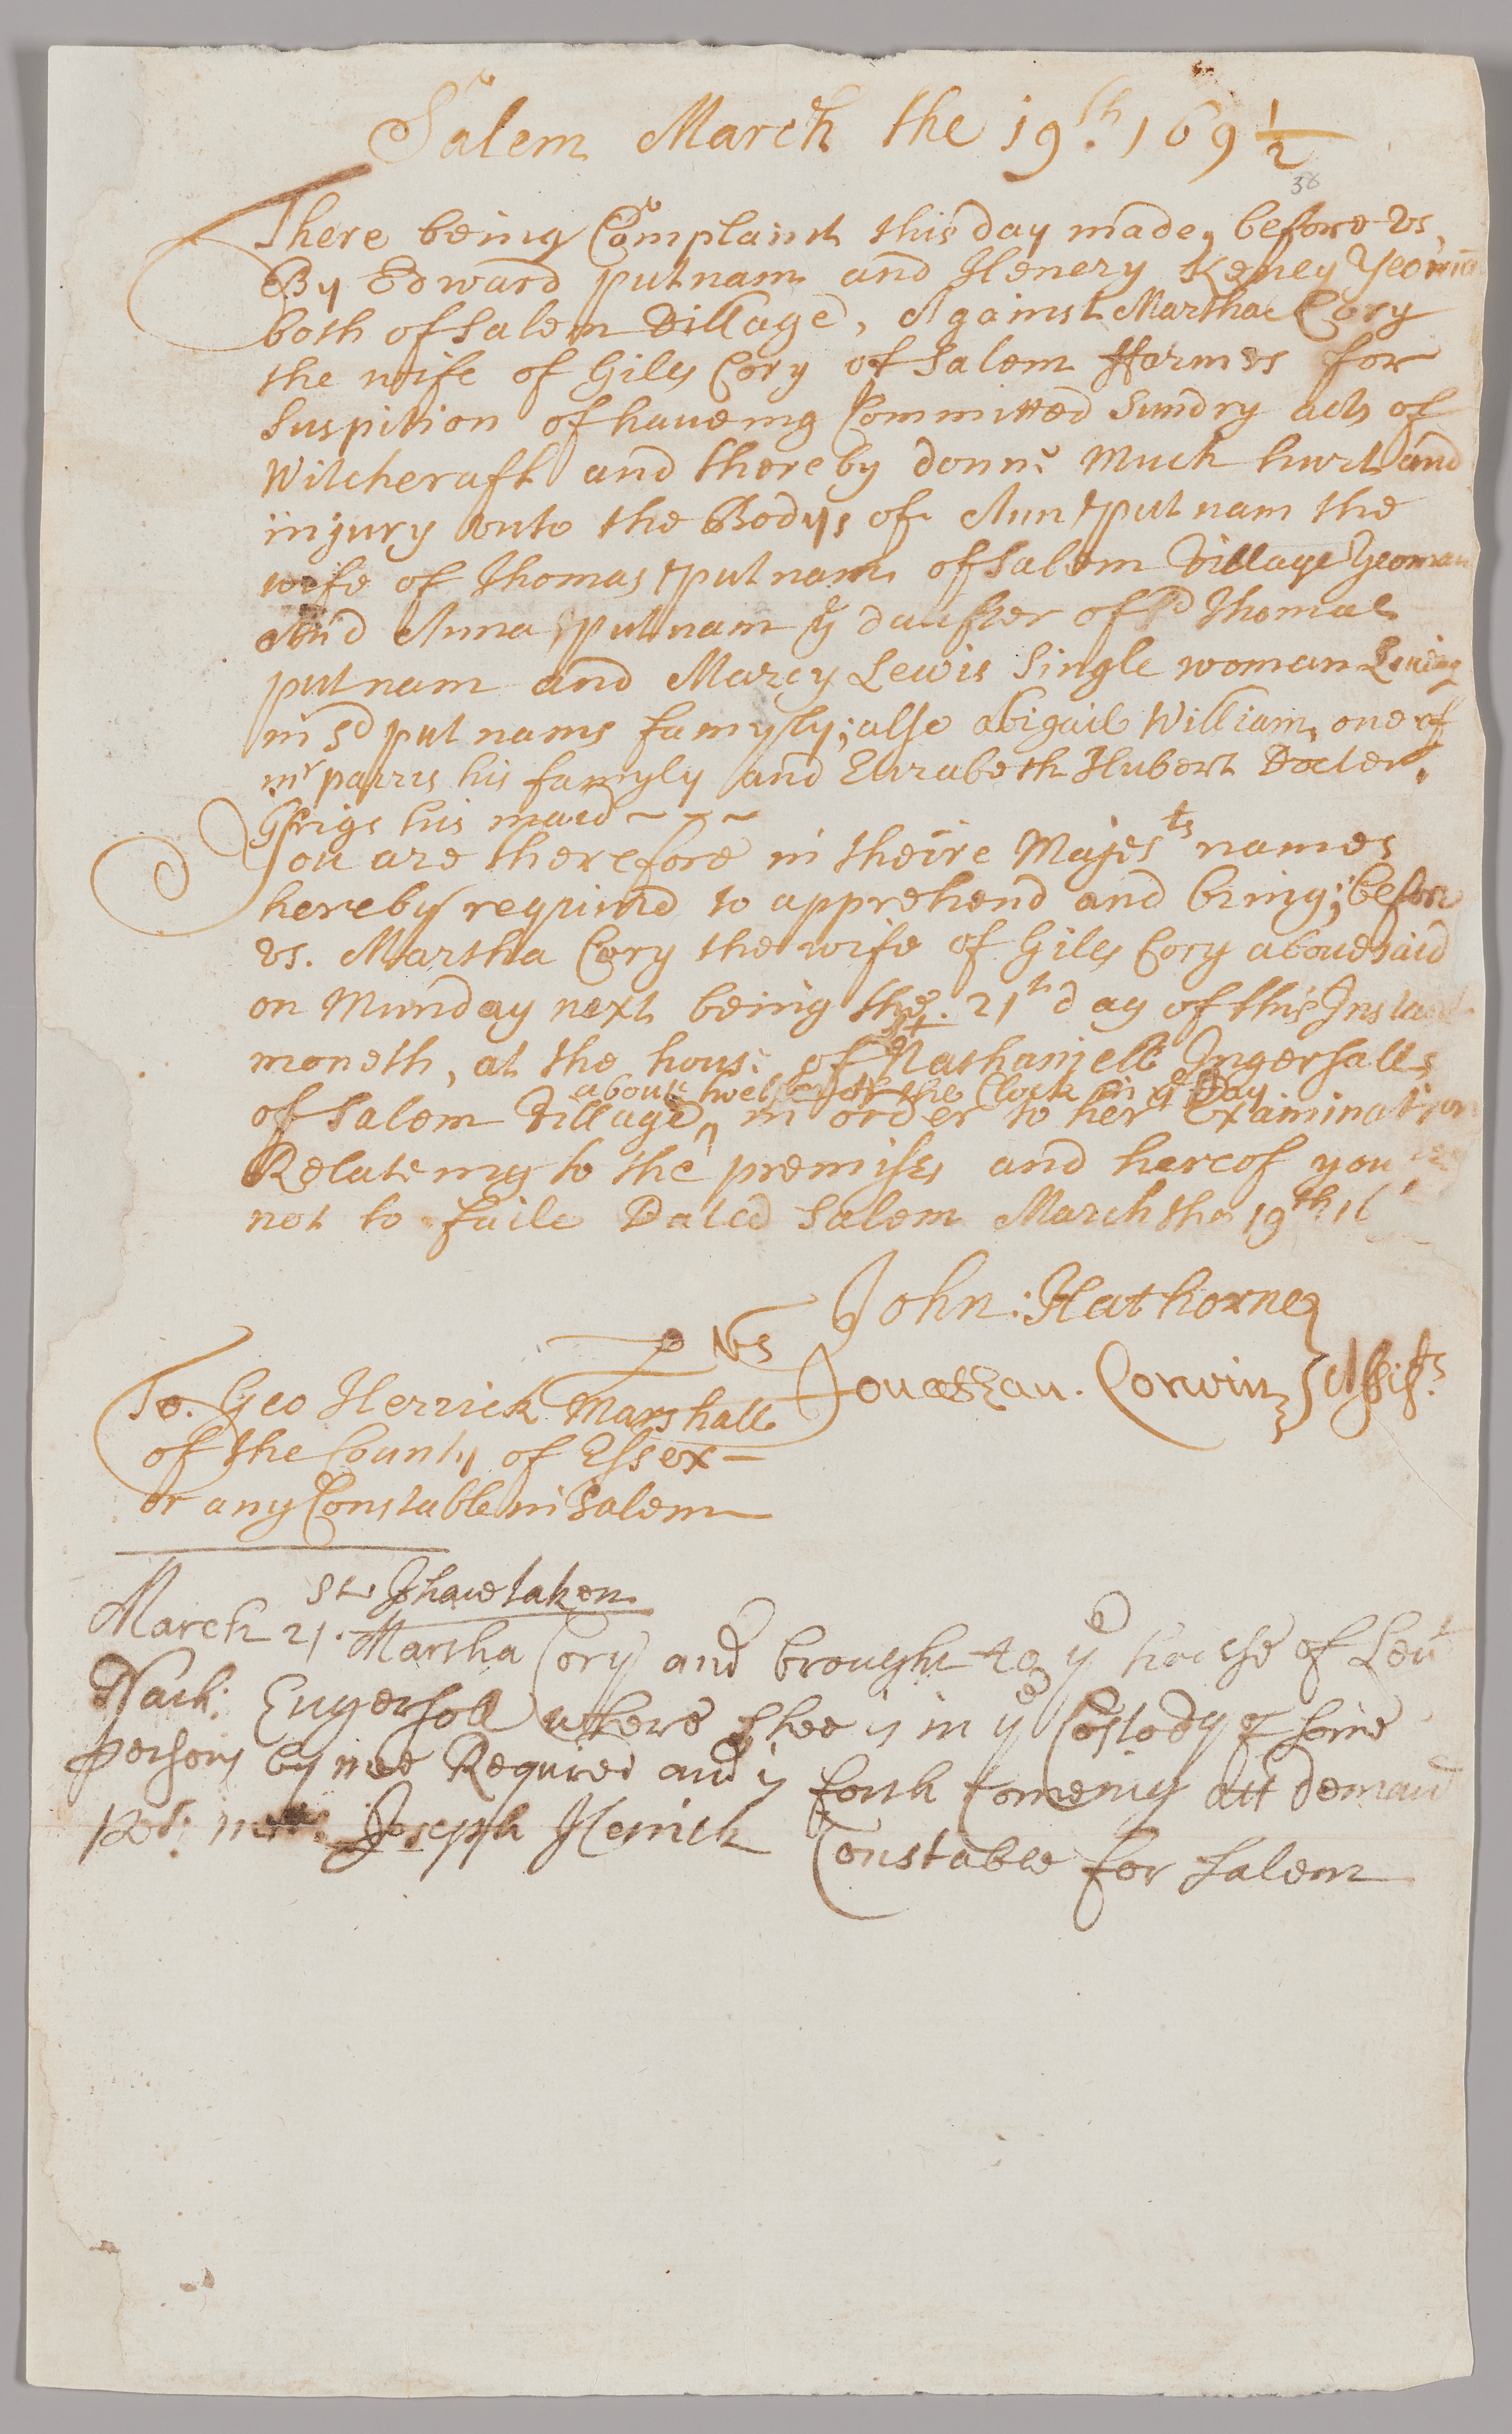 Salem March the 19th. 169 1/2
38
There being Complaint this day made, before vs,
By Edward putnam and Henery Keney Yeoman
both of Salem Village, Against Martha Cory
the wife of Giles Cory of Salem ffarmes for
Suspition of haveing Committed Sundry acts of
Witchcraft and thereby donne Much hurt and
injury vnto the Bodys of Ann putnam the
wife of Thomas putnam of Salem Village Yeoman
And Anna putnam ye daufter of sd Thomas
putnam and Marcy Lewis Single woman Liveing
in sd putnams famyly; also abigail William, one of
mr parris his famyly and Elizabeth Hubert Docter.
Grigs his maid ~ ~ ~
You are therefore in theire Majests names
hereby required to apprehend and bring; before
vs. Martha Cory the wife of Giles Cory abouesaid
on Munday next being the 21th day of this Instant
moneth, at the house of Lt Nathaniell Ingersalls
about twelve of the Clock in ye Day
of Salem Village, in order to her Examination
Relateing to the premises and hereof you
not to faile Dated Salem March the 19th 16
John: Hathorne
p vs
Jonathan. Corwin } Assists
To. Geo Herrick Marshall
of the County of Essex —
or any Constable in Salem
st I have taken
March 21. Martha Cory and brought to ye house of Leut
Nath: Engersoll where shee is in ye Costody of some
persons by mee Required and is forth Comeing att demand
per mee Joseph Herrick Constable for Salem